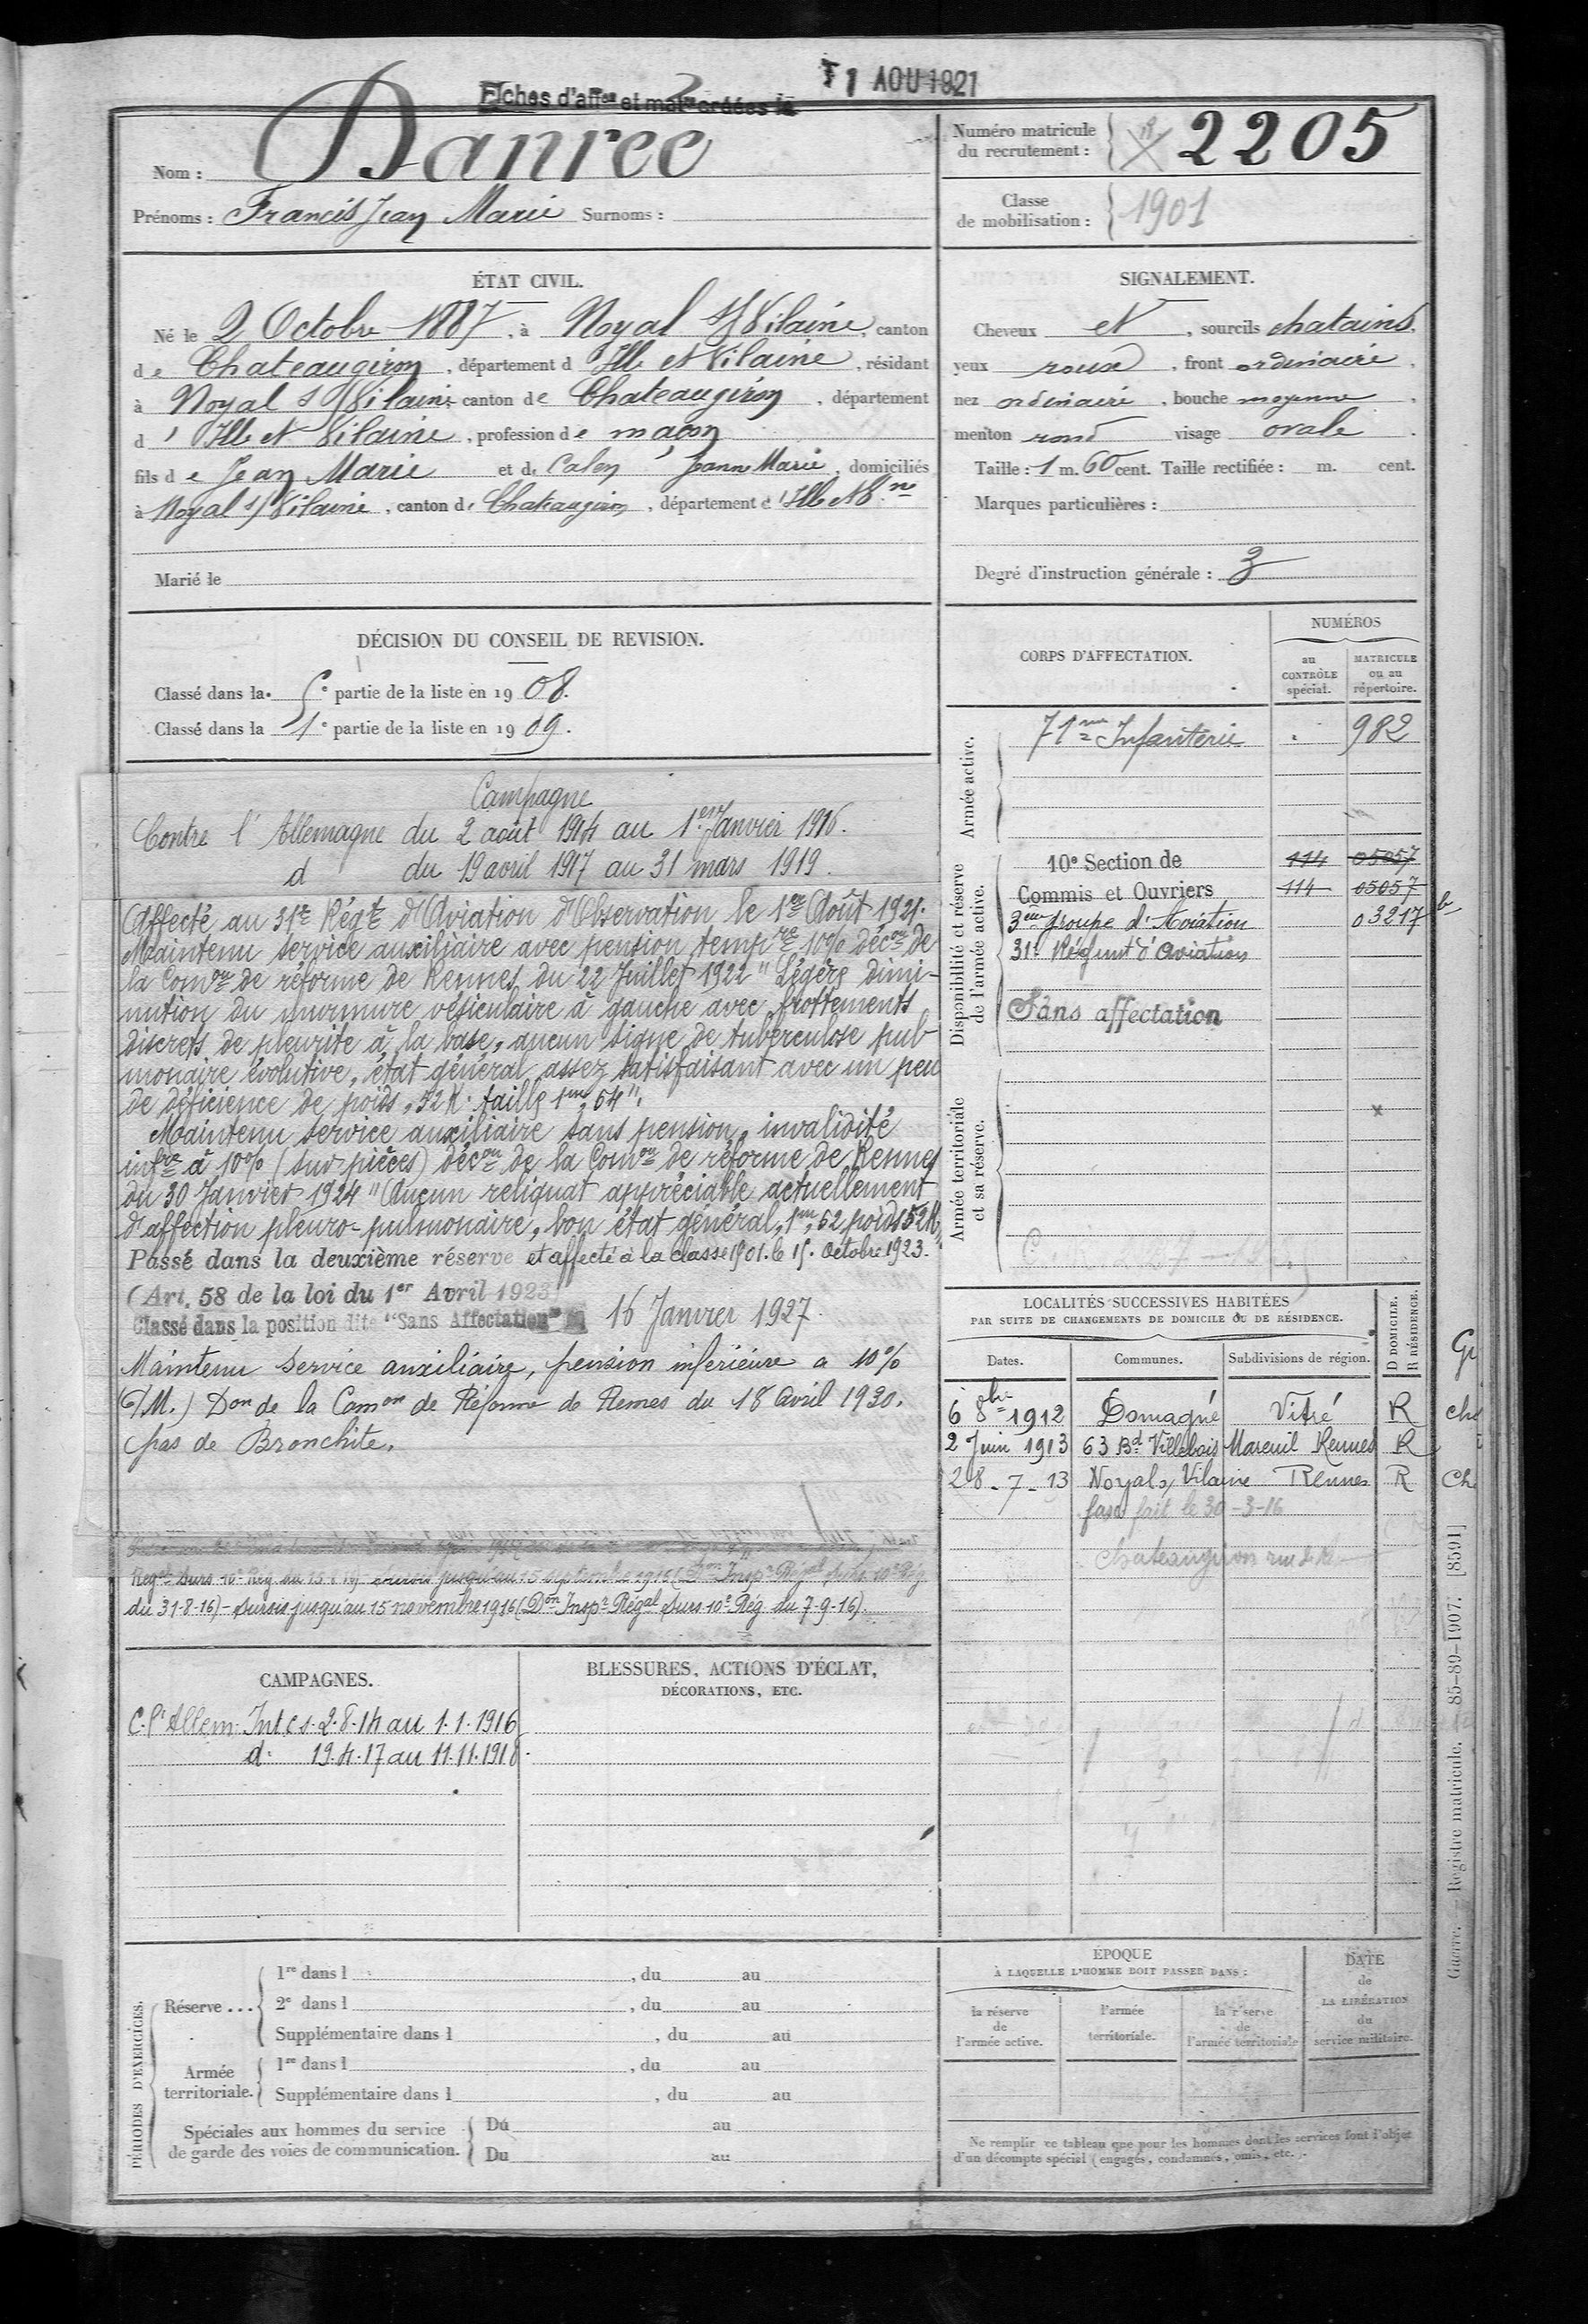 Fiches d'affon et matre créées le
1 AOU 1921
Nom : Danree
Prénoms : Francis Jean Marie Surnoms :
Numéro matricule du recrutement : 2205
Classe de mobilisation : 1901
ÉTAT CIVIL.
Né le 2 Octobre 1887, à Noyal s/Vilaine, canton
de Chateaugiron, département d'Ille et Vilaine, résidant
à Noyal s/Vilaine canton de Chateaugiron, département
d'Ille et Vilaine, profession de maçon
fils de Jean Marie et de Calen Jeanne Marie, domiciliés
à Noyal s/Vilaine, canton de Chateaugiron, département d'Ille et V.ne
Marié le
SIGNALEMENT.
Cheveux et, sourcils chatains,
yeux roux, front ordinaire,
nez ordinaire, bouche moyenne,
menton rond visage ovale.
Taille : 1 m. 60 cent. Taille rectifiée : m. cent.
Marques particulières :
Degré d'instruction générale : 3
DÉCISION DU CONSEIL DE REVISION.
Classé dans la 5e partie de la liste en 1908.
Classé dans la 1e partie de la liste en 1909.
Campagne
Contre l'Allemagne du 2 août 1914 au 1er Janvier 1916.
d du 19 avril 1917 au 31 mars 1919.
Affecté au 31e Régt d'Aviation d'Observation le 1er Août 1921.
Maintenu service auxiliaire avec pension tempre 10% décon de
la Comon de réforme de Rennes du 22 Juillet 1922 "Légère dimi-
nution du murmure vésiculaire à gauche avec frottements
discrets de pleurite à la base, aucun signe de tuberculose pul-
monaire évolutive, état général assez satisfaisant avec un peu
de déficience de poids, 52 K. taille 1m,64".
Maintenu service auxiliaire sans pension, invalidité
infre à 10% (sur pièces) décon de la Comon de réforme de Rennes
du 30 Janvier 1924 "Aucun reliquat appréciable actuellement
d'affection pleuro-pulmonaire, bon état général, 1m,62 poids 52K"
Passé dans la deuxième réserve et affecté à la classe 1901. le 15. Octobre 1923.
(Art. 58 de la loi du 1er Avril 1923)
Classé dans la position dite "Sans Affectation" 16 Janvier 1927.
Maintenu service auxiliaire, pension inférieure a 10%
(T.M.) Don de la Comon de Réforme de Rennes du 18 Avril 1930.
pas de Bronchite.
jusqu'au 15 septembre 1916 (Don Inspr Régal Surs 10e Rég
du 31-8-16) - Sursis jusqu'au 15 novembre 1916 (Don Inspr Régal Surs 10e Rég du 7-9-16).
CORPS D'AFFECTATION.
NUMÉROS
au CONTRÔLE spécial.
MATRICULE ou au répertoire.
Armée active.
71me Infanterie 982
Disponibilité et réserve de l'armée active.
10e Section de 114 05057
Commis et Ouvriers 114 05057
3eme groupe d'Aviation 03217
31e Régiment d'Aviation
Sans affectation
Armée territoriale et sa réserve.
LOCALITÉS SUCCESSIVES HABITÉES
PAR SUITE DE CHANGEMENTS DE DOMICILE OU DE RÉSIDENCE.
Dates. Communes. Subdivisions de région. D DOMICILE. R RÉSIDENCE.
6 8bre 1912 Domagné Vitré R
2 Juin 1913 63 Bd Villebois Mareuil Rennes R
28-7-13 Noyal s/ Vilaine Rennes R
fait le 30-3-16
CAMPAGNES.
C. l'Allem. Int C s. 2.8.14 au 1.1.1916
d. 19.4.17 au 11.11.1918.
BLESSURES, ACTIONS D'ÉCLAT,
DÉCORATIONS, ETC.
PÉRIODES D'EXERCICES.
Réserve ...
1re dans l , du au
2e dans l , du au
Supplémentaire dans l , du au
Armée territoriale.
1re dans l , du au
Supplémentaire dans l , du au
Spéciales aux hommes du service
de garde des voies de communication.
Du au
Du au
ÉPOQUE
À LAQUELLE L'HOMME DOIT PASSER DANS :
la réserve de l'armée active.
l'armée territoriale.
la réserve de l'armée territoriale
DATE de LA LIBÉRATION du service militaire.
Ne remplir ce tableau que pour les hommes dont les services font l'objet
d'un décompte spécial (engagés, condamnés, omis, etc.).
Guerre. — Registre matricule. 85-89-1907. [8591]